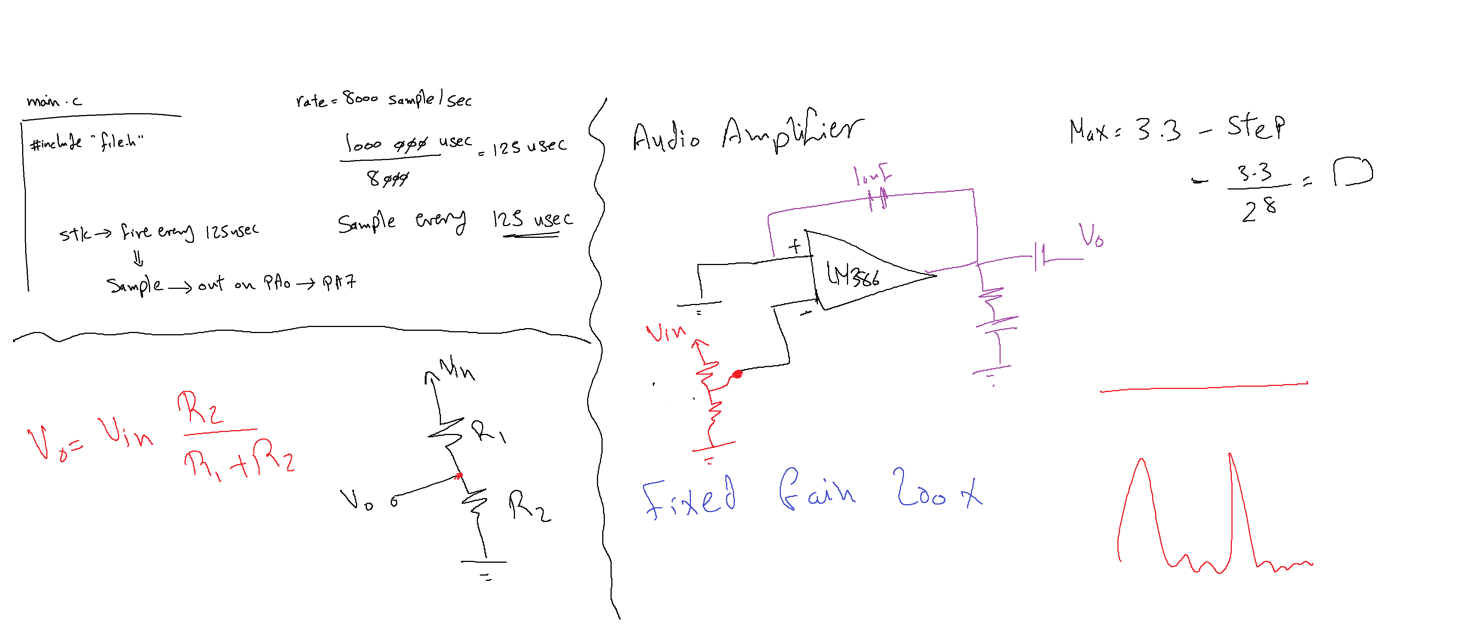 main.c
#include "file.h"
stk → fire every 125usec
⇓
Sample → out on PA0 → PA7
rate = 8000 sample/sec
1000 000 usec / 8000 = 125 usec
Sample every 125 usec
V0 = Vin R2 / R1 + R2
Vin
R1
V0
R2
Audio Amplifier
10uF
+
LM386
-
V0
Vin
Fixed Gain 200x
Max = 3.3 - Step
- 3.3 / 2^8 =